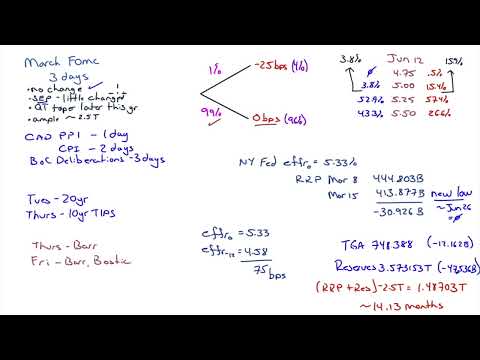 March Fomc
3 days
• no change ✓
• SEP - little changed
• QT taper later this yr
• ample ~ 2.5T
CAD PPI - 1 day
CPI - 2 days
BoC Deliberations - 3 days
Tues - 20yr
Thurs - 10yr TIPS
Thurs - Barr
Fri - Barr, Bostic
1%
-25bps (4%)
99%
0bps (96%)
3.8% Jun 12 15.9%
∅ 4.75 .5%
3.8% 5.00 15.4%
52.9% 5.25 57.4%
43.3% 5.50 26.6%
NY Fed effr₀ = 5.33%
RRP Mar 8 444.803B
Mar 15 413.877B new low
-30.926B ~Jun 26 =∅
effr₀ = 5.33
effr₋₁₂ = 4.58
75 bps
TGA 748.388 (-12.162B)
Reserves 3.573153T (-47.536B)
(RRP + Res) - 2.5T = 1.48703T
~ 14.13 months